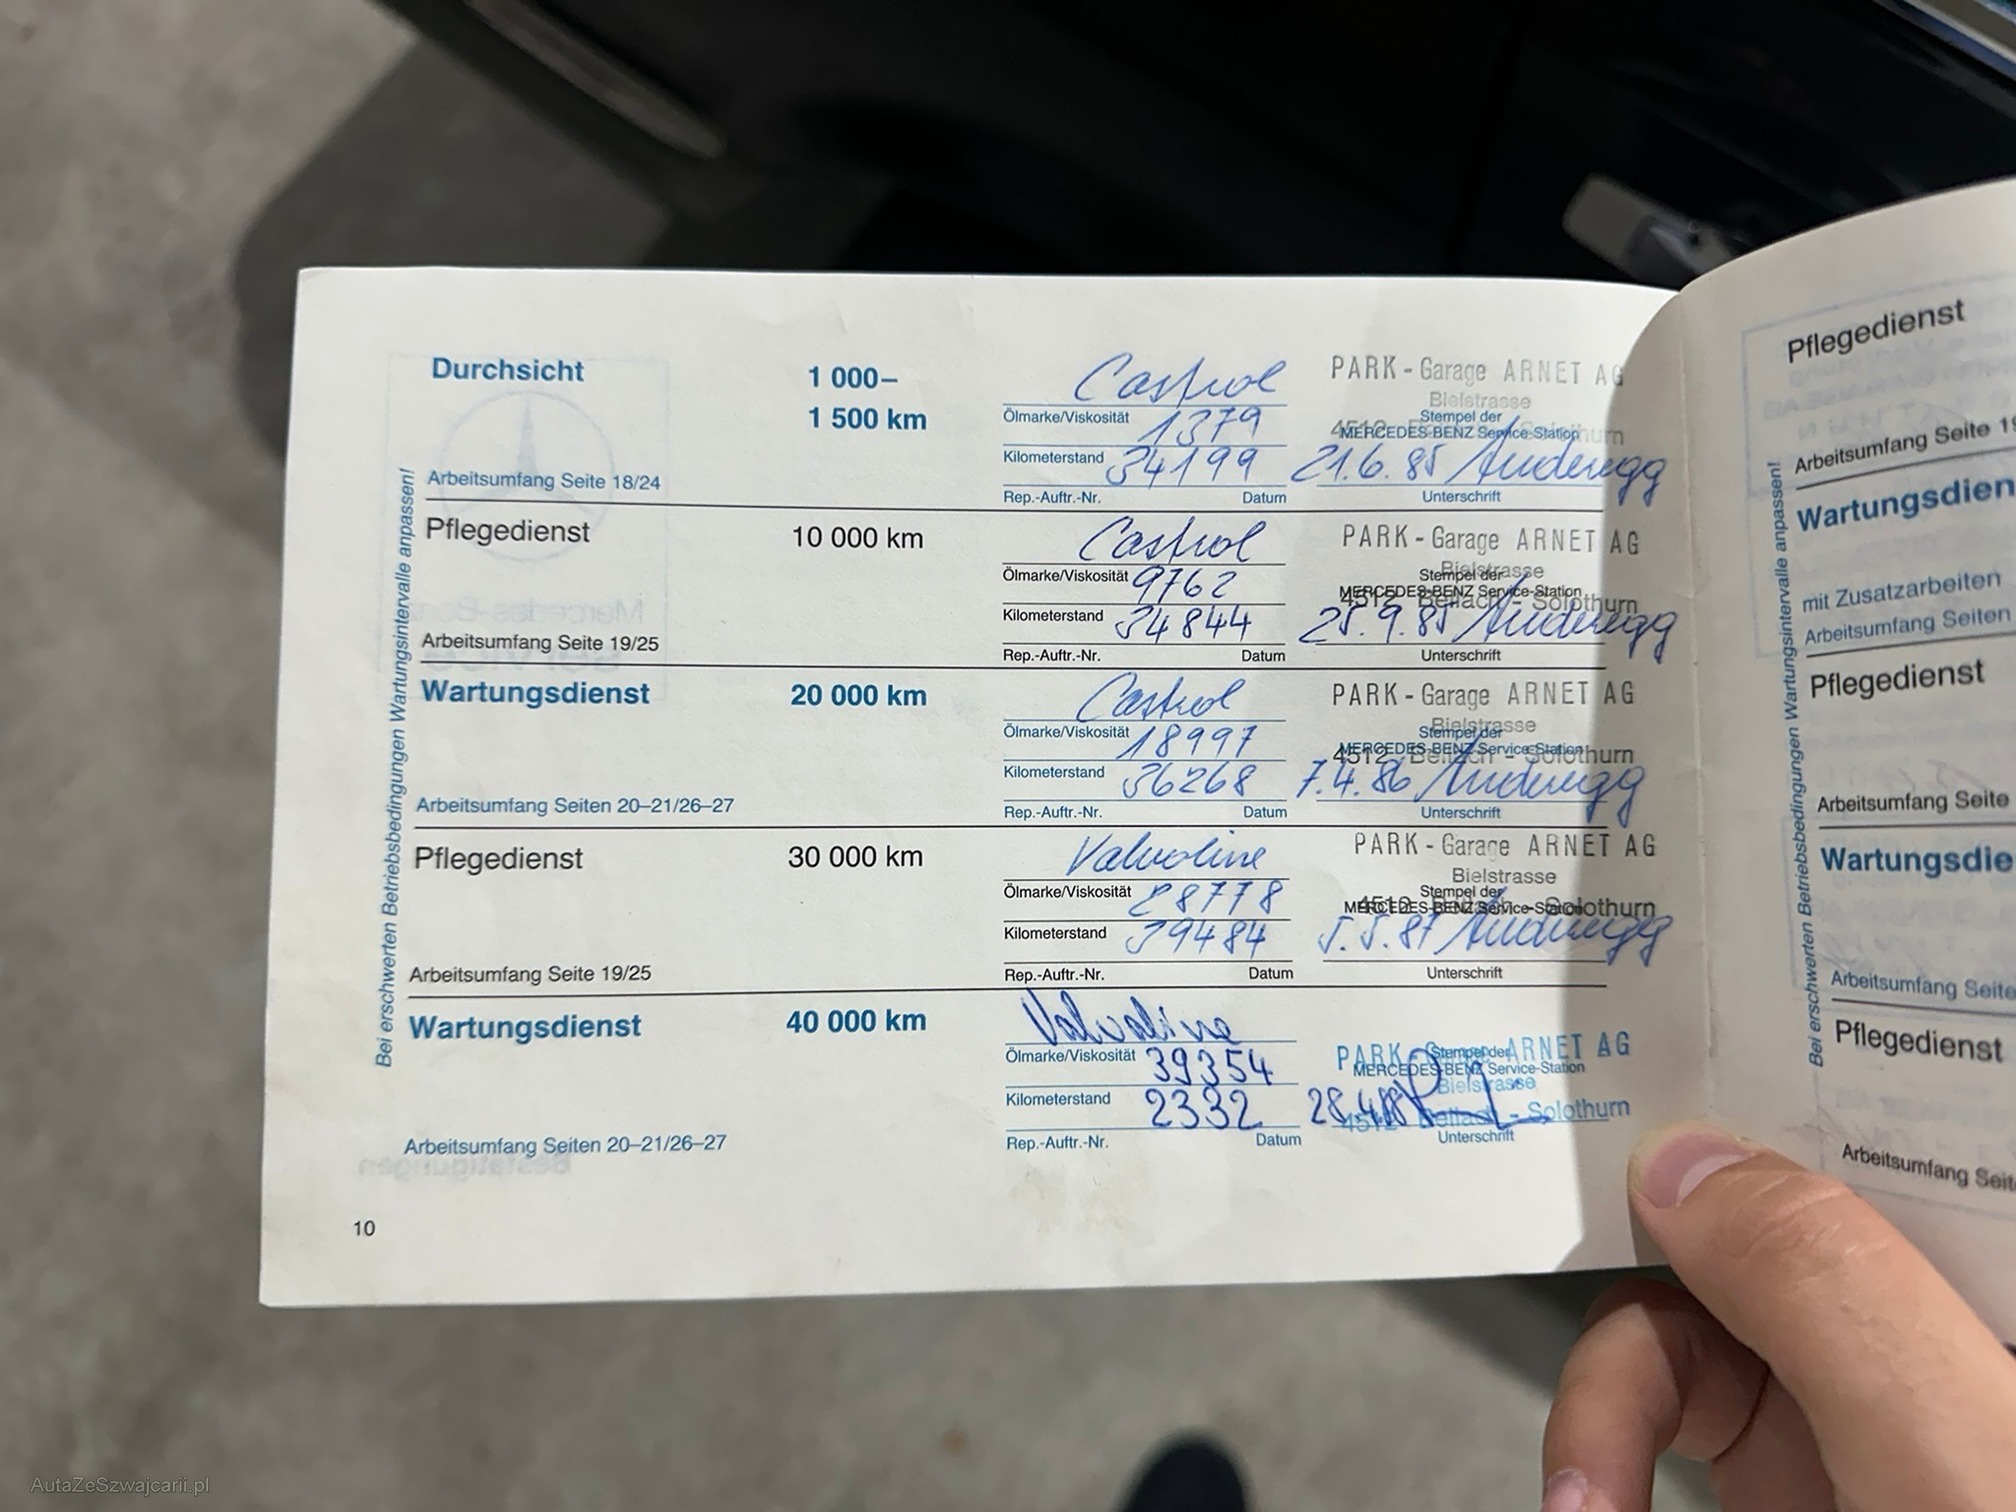 Bei erschwerten Betriebsbedingungen Wartungsintervalle anpassen!
Durchsicht
1 000–
1 500 km
Arbeitsumfang Seite 18/24
Castrol
Ölmarke/Viskosität 1379
Kilometerstand 34199
Rep.-Auftr.-Nr. Datum
PARK - Garage ARNET AG
Bielstrasse
Stempel der
MERCEDES-BENZ Service-Station
21.6.85 Anderegg
Unterschrift
Pflegedienst
10 000 km
Arbeitsumfang Seite 19/25
Castrol
Ölmarke/Viskosität 9762
Kilometerstand 34844
Rep.-Auftr.-Nr. Datum
PARK - Garage ARNET AG
Bielstrasse
Stempel der
MERCEDES-BENZ Service-Station
4512 Bellach - Solothurn
25.9.85 Anderegg
Unterschrift
Wartungsdienst
20 000 km
Arbeitsumfang Seiten 20–21/26–27
Castrol
Ölmarke/Viskosität 18997
Kilometerstand 36268
Rep.-Auftr.-Nr. Datum
PARK - Garage ARNET AG
Bielstrasse
Stempel der
MERCEDES-BENZ Service-Station
4512 Bellach - Solothurn
7.4.86 Anderegg
Unterschrift
Pflegedienst
30 000 km
Arbeitsumfang Seite 19/25
Valvoline
Ölmarke/Viskosität 28778
Kilometerstand 39484
Rep.-Auftr.-Nr. Datum
PARK - Garage ARNET AG
Bielstrasse
Stempel der
MERCEDES-BENZ Service-Station
4512 Solothurn
5.5.87 Anderegg
Unterschrift
Wartungsdienst
40 000 km
Arbeitsumfang Seiten 20–21/26–27
Valvoline
Ölmarke/Viskosität 39354
Kilometerstand 2332
Rep.-Auftr.-Nr. Datum
PARK - ARNET AG
Stempel der
MERCEDES-BENZ Service-Station
Bielstrasse
4512 Bellach - Solothurn
28.4.88
Unterschrift
10
Bei erschwerten Betriebsbedingungen Wartungsintervalle anpassen!
Pflegedienst
Arbeitsumfang Seite
Wartungsdien
mit Zusatzarbeiten
Arbeitsumfang Seiten
Pflegedienst
Arbeitsumfang Seite
Wartungsdie
Arbeitsumfang Seite
Pflegedienst
Arbeitsumfang Seit
AutaZeSzwajcarii.pl